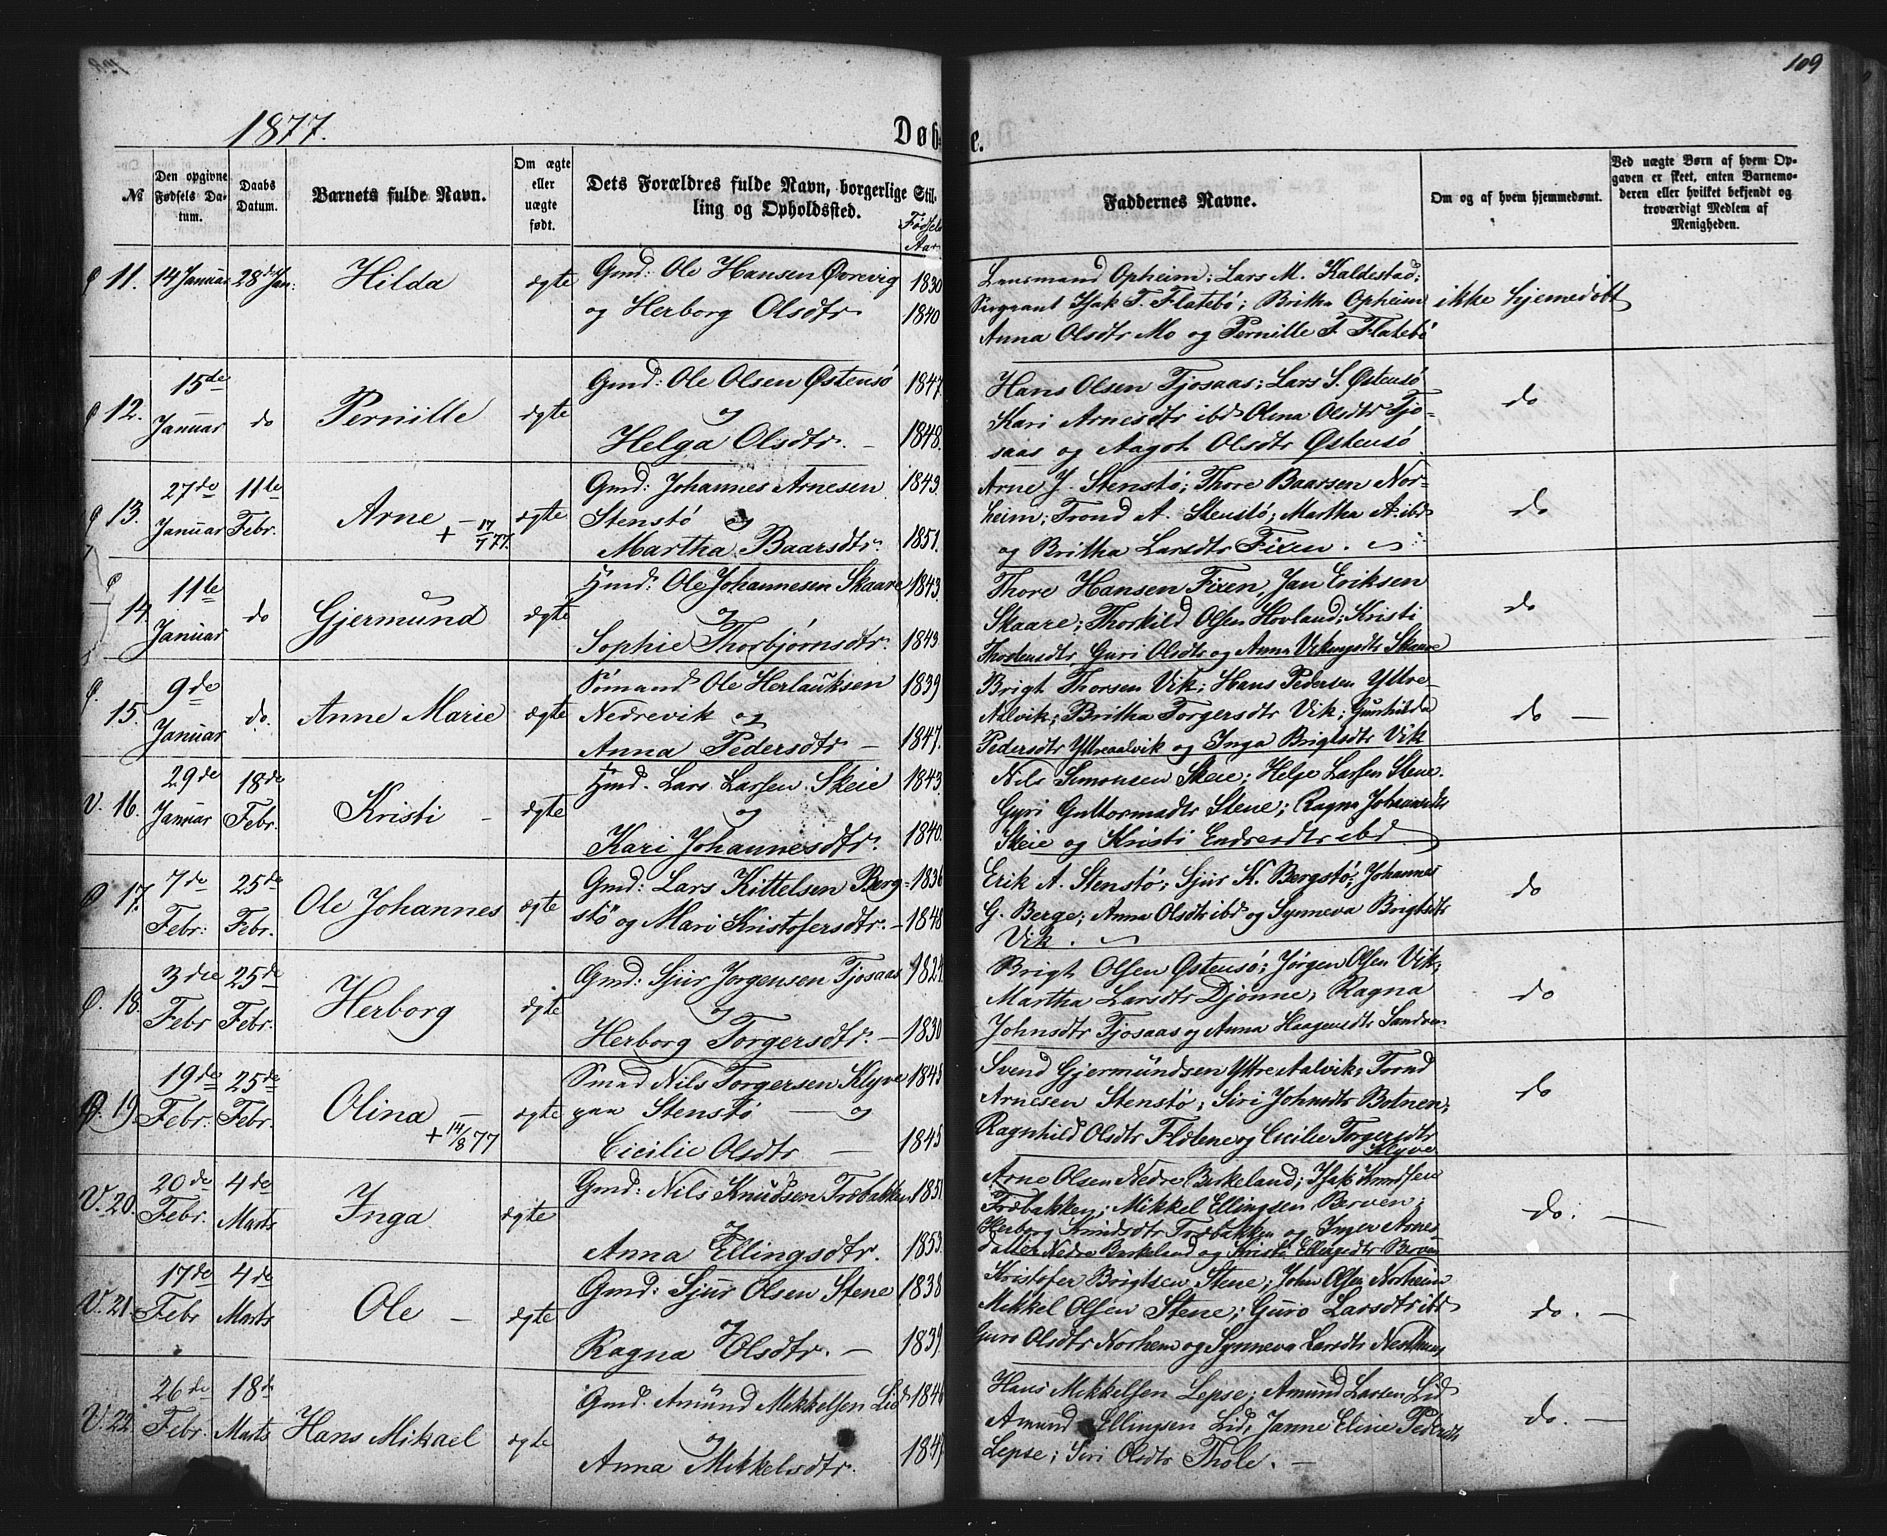 109
1877.
Døbte.
№
Den opgivne Fødsels Datum.
Daabs Datum.
Barnets fulde Navn.
Om ægte eller uægte født.
Dets Forældres fulde Navn, borgerlige Stilling og Opholdssted.
Fødsels Aar
Faddernes Navne.
Om og af hvem hjemmedøbt.
Ved uægte Børn af hvem Opgaven er skeet, enten Barnemoderen eller hvilket bekjendt og troværdigt Medlem af Menigheden.
11. 14 Januar 28de Jan: Hilda ægte
Gmd: Ole Hansen Øvrevig 1830
og Herborg Olsdtr 1840
Lensmand Opheim; Lars M. Kaldestad;
Sergeant Isak T. Flatebø; Britha Opheim
Anna Olsdtr Mo og Pernille T. Flatebø
ikke hjemedøbt
12. 15de Januar do Pernille ægte
Gmd: Ole Olsen Østensø 1847.
og
Helga Olsdtr. – 1848.
Hans Olsen Tjosaas; Lars S. Østensø
Kari Arnesdtr ibd Olina Olsdtr Tjo-
saas og Aagot Olsdtr Østensø
do
13. 27de Januar 11te Febr. Arne – + 17/7 77. ægte
Gmd: Johannes Arnesen 1843.
Stenstø og
Martha Baarsdtr. 1851.
Arne J. Stenstø; Thore Baarsen Nor-
heim; Trond A. Stenstø; Martha A. ibd
og Britha Larsdtr Fixen.
do
14. 11te Januar do Gjermund ægte
Hmd: Ole Johannesen Skaare 1843.
og
Sophie Thorbjørnsdtr. 1843
Thore Hansen Fixen, Jan Eriksen
Skaare; Thorkild Olsen Hovland; Kristi
Thorstensdtr, Guri Olsdtr og Anna Vikingsdtr Skaare
do
15. 9de Januar do. Anne Marie ægte
Sømand Ole Herlauksen 1839
Nedrevik og
Anna Pedersdtr – 1847.
Brigt Thorsen Vik; Hans Pedersen Yttre-
Aalvik; Britha Torgersdtr Vik; Gunhilda
Pedersdtr Yttreaalvik og Inga Brigtsdtr Vik
do –
V. 16. 29de Januar 18de Febr. Kristi – ægte
Hmd. Lars Larsen Skeie 1843.
og
Kari Johannesdtr. 1840.
Nils Simonsen Skeie; Helje Larsen Stene.
Gyri Guttormsdtr Stene; Ragna Johannesdtr
Skeie og Kristi Endresdtr ibd
17. 7de Febr: 25de Febr. Ole Johannes ægte
Gmd: Lars Kittelsen Berg- 1836
stø og Mari Kristofersdtr. – 1848
Erik A. Stenstø; Sjur K. Bergstø; Johannes
G. Berge; Anna Olsdtr ibd og Synneva Brigtsdtr
Vik.
do
18. 3die Febr 25de Febr. Herborg ægte
Gmd: Sjur Jørgensen Tjosaas 1824
og
Herborg Torgersdtr. – 1830
Brigt Olsen Østensø; Jørgen Olsen Vik;
Martha Larsdtr Djønne; Ragna
Johnsdtr Tjosaas og Anna Haagensdtr Sandven
do
19. 19de Febr. 25de Febr. Olina – + 14/8 77 ægte
Smed Nils Torgersen Klyve 1845
paa Stenstø – og
Cicilie Olsdtr – 1845
Svend Gjermundsen Yttre Aalvik; Trond
Arnesen Stenstø; Siri Johnsdtr Botnen;
Ragnhild Olsdtr Flotene og Cicilie Torgersdtr
Klyve
do
V. 20. 20de Febr. 4de Marts Inga ægte
Gmd: Nils Knudsen Træbakken 1851
og
Anna Ellingsdtr. 1853.
Arne Olsen Nedre Birkeland; Isak Knudsen
Træbakken; Mikkel Ellingsen Berven;
Herborg Knudsdtr Træbakken og Inger Arnes-
datter Nedre Birkeland og Kristi Ellingsdtr Berven
do. –
V. 21. 17de Febr 4de Marts Ole – ægte
Gmd: Sjur Olsen Stene 1838
og
Ragna Olsdtr. – 1839.
Kristofer Brigtsen Stene; John Olsen Norheim
Mikkel Olsen Stene; Guro Larsdtr ibd
Guro Olsdtr Norheim og Synneva Larsdtr Nesthuus
do. –
V. 22. 26de Febr. 18de Marts Hans Mikael ægte
Gmd: Amund Mikkelsen Lid 1846
og
Anna Mikkelsdtr. 1847
Hans Mikkelsen Lepse; Amund Larsen Lid
Amund Ellingsen Lid; Janne Eline Pedersdtr
Lepse; Siri Olsdtr Thole. –
do. –